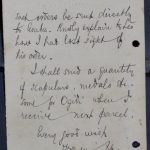 and orders be sent directly
to books. Kindly explain to him
how I had lost sight of
his order.
I shall send a quantity
of scapulars, medals etc.
some for Ogiti when I
receive next parcel.
Every good wish